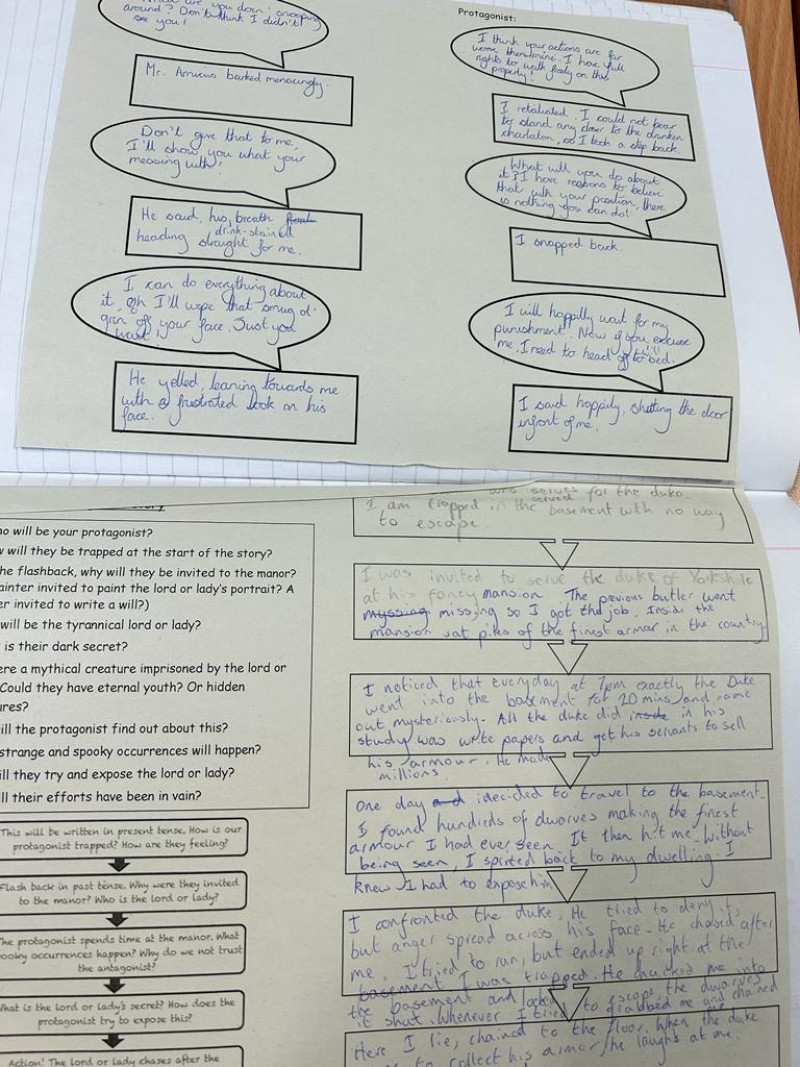 are you doin' snooping
around? Don't think I didn't
see you!
Mr. Amicus barked menacingly.
Don't give that to me,
I'll show you what your
messing with!
He said, his breath
drink-stained
heading straight for me.
I can do everything about
it, oh I'll wipe that smug ol'
grin off your face. Just you
wait!
He yelled, leaning towards me
with a frustrated look on his
face.
Protagonist:
I think your actions are far
worse then mine. I have full
rights to walk freely on this
property!
I retaliated. I could not bear
to stand any closer to the drunken
charlaton, so I took a step back.
What will you do about
it? I have reasons to believe
that with your position, there
is nothing you can do!
I snapped back.
I will happilly wait for my
punishment. Now if you excuse
me, I need to head off to bed.
I said happily, shutting the door
infront of me.
o will be your protagonist?
will they be trapped at the start of the story?
he flashback, why will they be invited to the manor?
ainter invited to paint the lord or lady's portrait? A
er invited to write a will?)
will be the tyrannical lord or lady?
is their dark secret?
ere a mythical creature imprisoned by the lord or
Could they have eternal youth? Or hidden
ures?
ill the protagonist find out about this?
strange and spooky occurrences will happen?
ill they try and expose the lord or lady?
ll their efforts have been in vain?
This will be written in present tense. How is our
protagonist trapped? How are they feeling?
Flash back in past tense. Why were they invited
to the manor? Who is the lord or lady?
The protagonist spends time at the manor. What
pooky occurrences happen? Why do we not trust
the antagonist?
What is the lord or lady's secret? How does the
protagonist try to expose this?
Action! The lord or lady chases after the
who serves for the duke.
served
I am trapped in the basement with no way
to escape
I was invited to serve the duke of Yorkshire
at his fancy mansion. The previous butler went
myssing missing so I got the job. Inside the
mansion sat piles of the finest armor in the country
I noticed that everyday at 7pm exactly the Duke
went into the basement for 20 mins and came
out mysteriously. All the duke did inside in his
study was write papers and get his servants to sell
his armour. He made
millions.
One day and i decided to travel to the basement.
I found hundreds of dwarves making the finest
armour I had ever seen. It then hit me. Without
being seen, I sprited back to my dwelling. I
knew I had to expose him
I confronted the duke. He tried to deny it,
but anger spread across his face. He chased after
me. I tried to run, but ended up right at the
basement. I was trapped. He chucked me into
the basement and locked
it shut. Whenever I tried to escape the dwarves
grabbed me and chained
Here I lie, chained to the floor. When the duke
to collect his armor, he laughs at me.